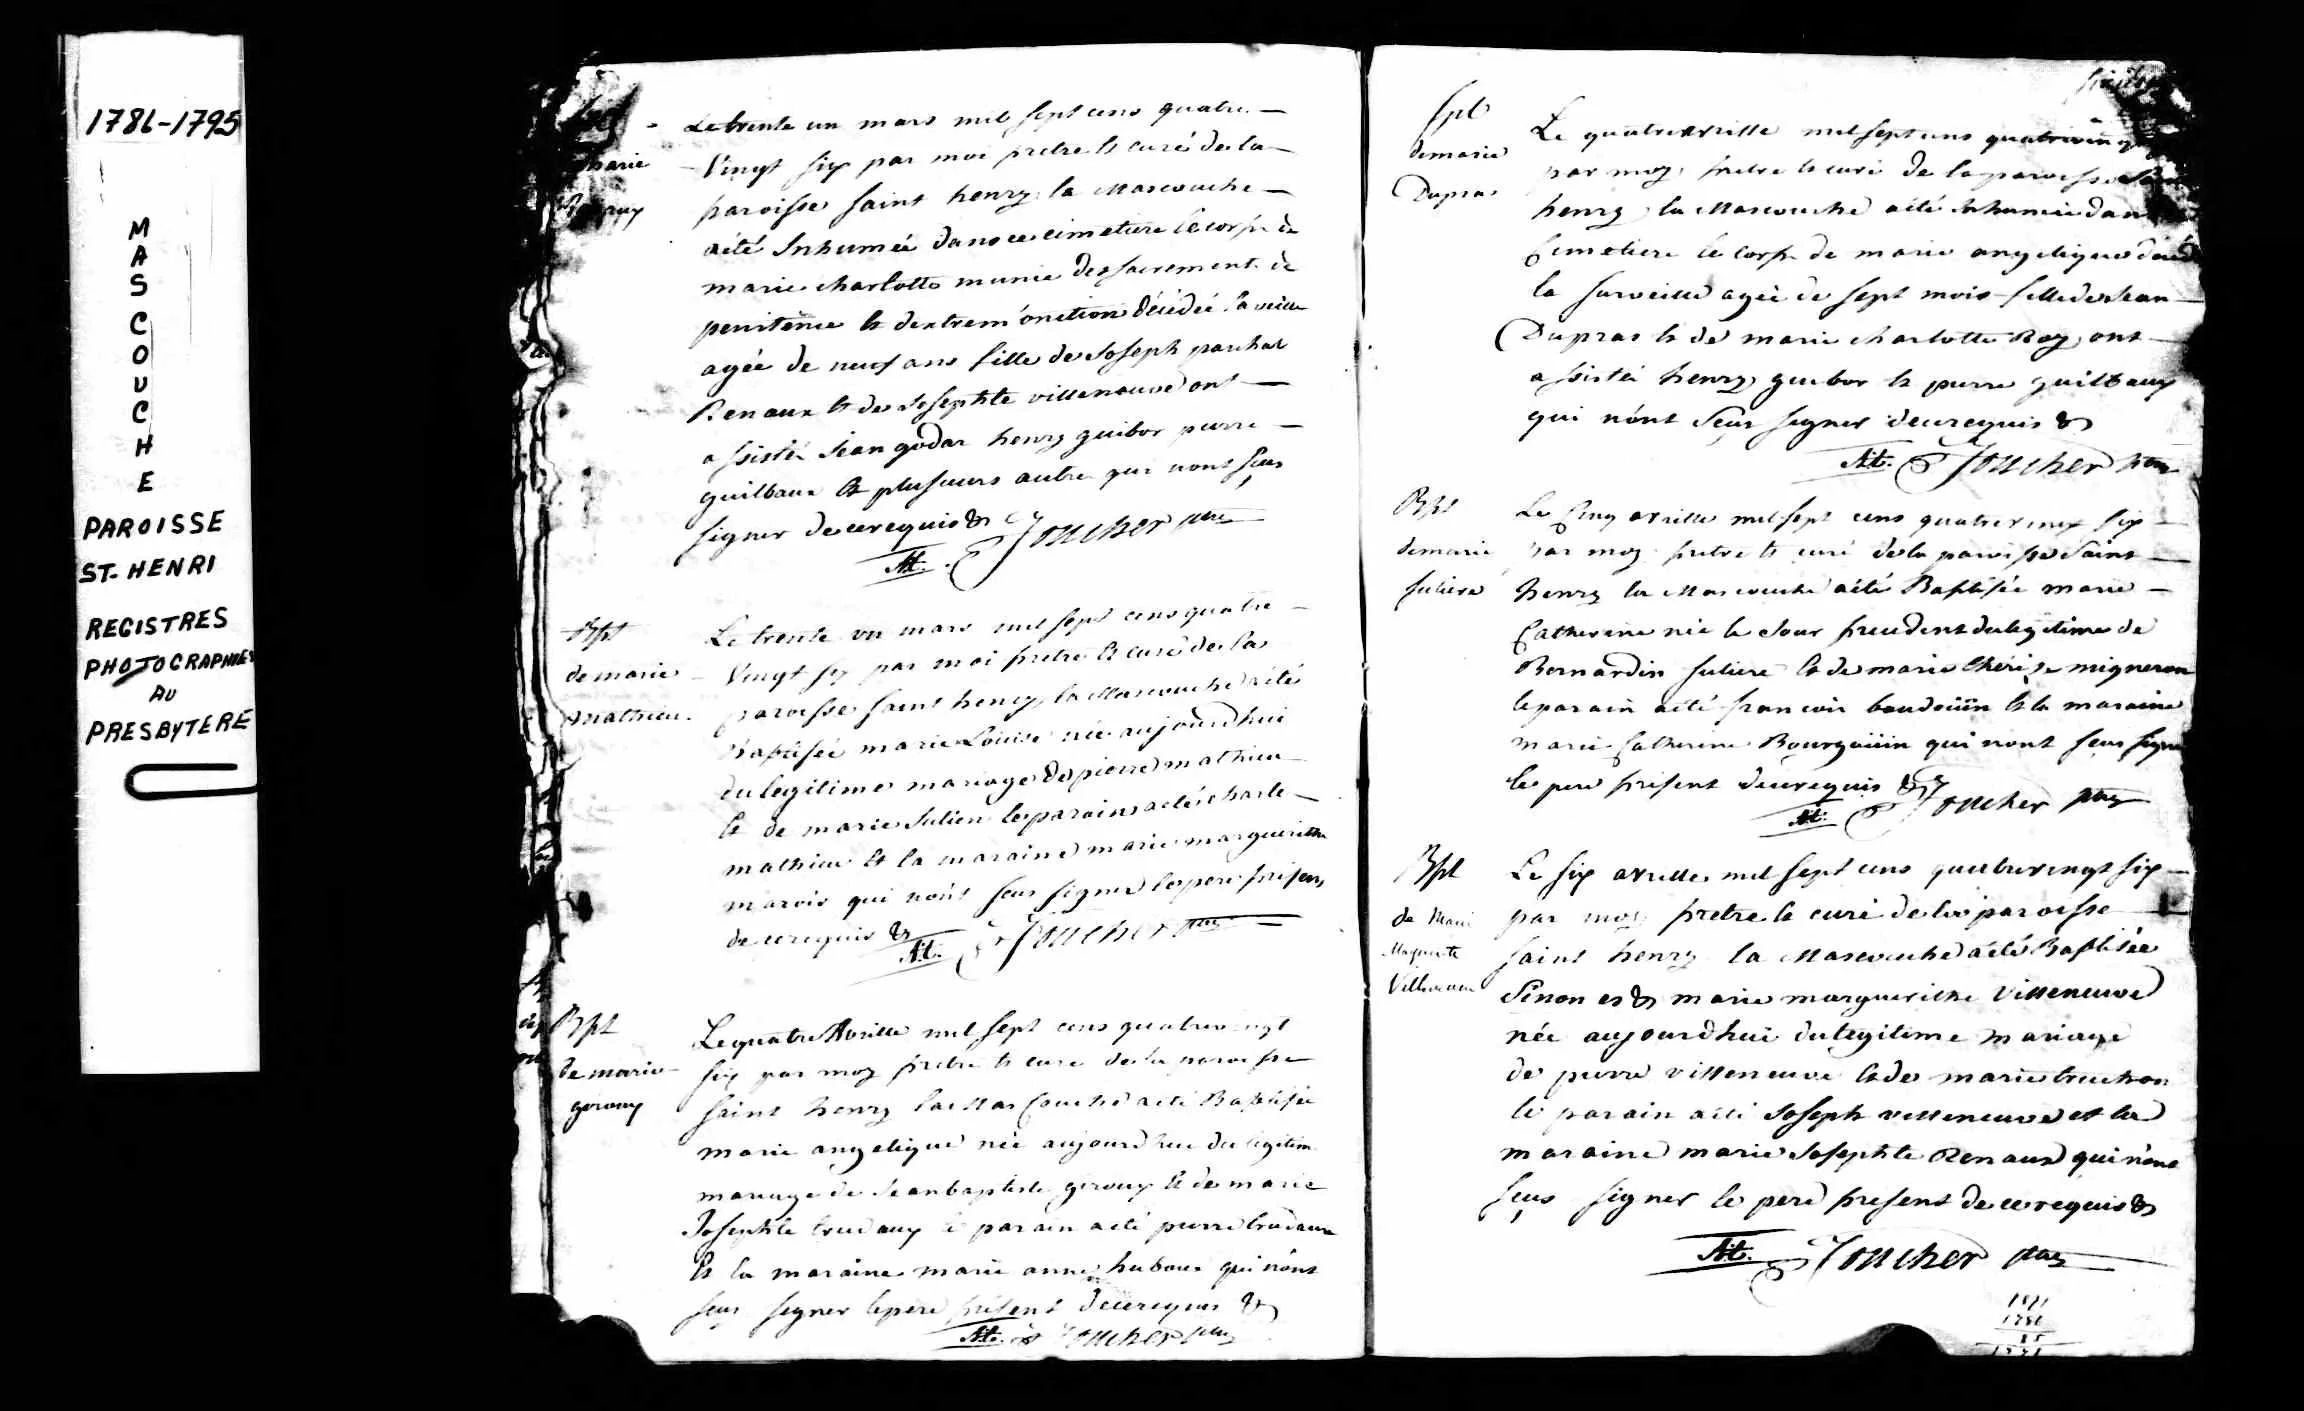 1786-1795
MASCOUCHE
PAROISSE
ST-HENRI
REGISTRES
PHOTOGRAPHIES
AU
PRESBYTERE
marie
Le trente un mars mil sept cens quatre
Vingt six par moi pretre & curé de la
paroisse saint henry la Mascouche
aété Inhumée dans ce cimetiere le corps de
marie charlotte munie des sacrement de
penitence & dextrem onction décédée la veille
agée de neuf ans fille de Joseph
Renaux & de Josephte villeneuve ont
assisté Jean godar henry guibor pierre
guilbaux & plusieurs autre qui nont sçus
signer de ce requis &
At. Foucher ptre
Bpt
de marie
mathieu
Le trente un mars mil sept cens quatre
Vingt six par moi pretre & curé de la
paroisse saint henry la Mascouche aété
Baptisée marie Louise née aujourdhui
du legitime mariage de pierre mathieu
& de marie Julien le parain aété charle
mathieu & la maraine marie margueritte
marois qui nónt seus signer le pere présent
de ce requis &
At. Foucher ptre
Bpt
de marie
giroux
Le quatre Avrille mil sept cens quatrevingt
six par moy pretre & curé de la paroisse
saint henry la Mascouche aété Baptisée
marie angelique née aujourdhui du legitim
mariage de Jean baptiste giroux & de marie
Josephte trudaux le parain aété pierre trudaux
& la maraine marie anne hubous qui nónt
seus signer le pere présent de ce requis &
At. Foucher ptre
Spt
de marie
Dupras
Le quatre avrille mil sept cens
par moy pretre & curé de la paroisse
henry la Mascouche aété Inhumée dans
Cimetiere le Corps de marie angelique
la surveille agée de sept mois fille de Jean
Dupras & de marie charlotte Roy ont
assisté henry guibor & pierre guilbaux
qui nónt Seus signer de ce requis &
At. Foucher ptre
Bpt
de marie
Juliere
Le Cinq avrille mil sept cens quatrevingt six
par moy pretre & curé de la paroisse Saint
henry la Mascouche aété Baptisée marie
Catherine née le Jour précédent du legitime de
Bernardin Juliere & de marie thérèse migneron
le parain aété francois baudoüin & la maraine
marie Catherine Bourgoüin qui nont seus signer
le pere présent de ce requis &
At. Foucher ptre
Bpt
de Marie
Villeneuve
Le six avrille mil sept cens quatrevingt six
par moy pretre & curé de la paroisse
saint henry la Mascouche aété Baptisée
marie margueritte Villeneuve
née aujourdhui du legitime mariage
de pierre villeneuve & de marie truchon
le parain aété Joseph villeneuve et la
maraine marie Josephte Renaud qui nónt
seus signer le pere présent de ce requis &
At. Foucher ptre
1871
1786
85
1871